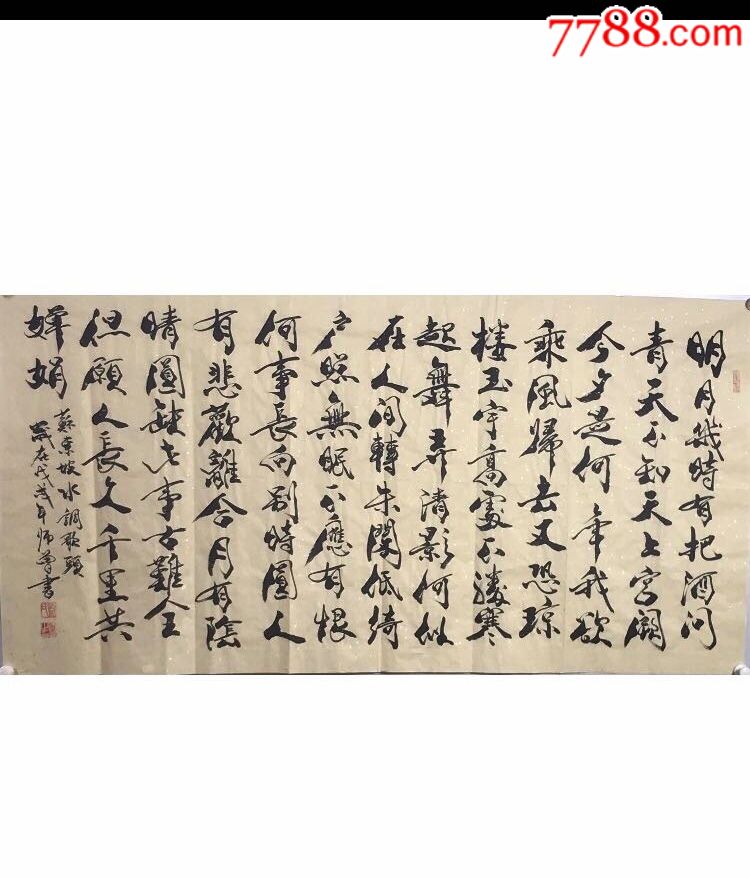 7788.com
明月幾時有把酒问
青天不知天上宫阙
今夕是何年我欲
乘風歸去又恐琼
楼玉宇高處不勝寒
起舞弄清影何似
在人间轉朱閣低绮
户照無眠不應有恨
何事長向别時圓人
有悲歡離合月有陰
晴圆缺此事古難全
但願人長久千里共
婵娟
蘇東坡水調歌頭
歲在戊戌年師曾書